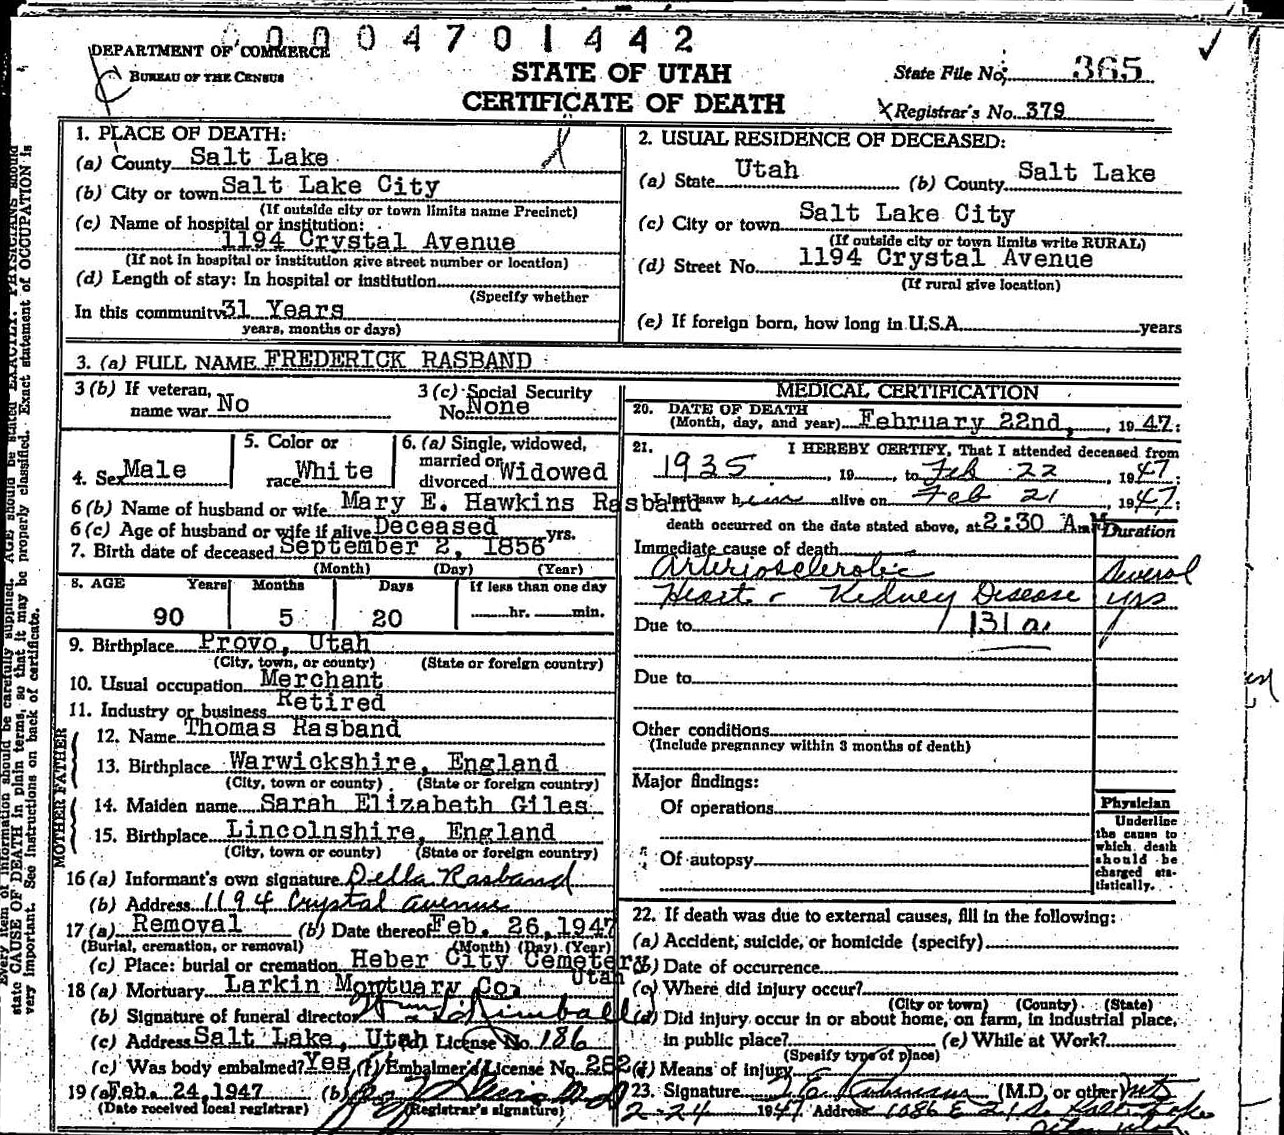 00004701442
DEPARTMENT OF COMMERCE
BUREAU OF THE CENSUS
STATE OF UTAH
CERTIFICATE OF DEATH
State File No. 365
Registrar's No. 379
1. PLACE OF DEATH:
(a) County Salt Lake
(b) City or town Salt Lake City
(If outside city or town limits name Precinct)
(c) Name of hospital or institution:
1194 Crystal Avenue
(If not in hospital or institution give street number or location)
(d) Length of stay: In hospital or institution
(Specify whether
In this community 31 Years
years, months or days)
2. USUAL RESIDENCE OF DECEASED:
(a) State Utah (b) County Salt Lake
(c) City or town Salt Lake City
(If outside city or town limits write RURAL)
(d) Street No. 1194 Crystal Avenue
(If rural give location)
(e) If foreign born, how long in U.S.A. years
3. (a) FULL NAME FREDERICK RASBAND
3 (b) If veteran, name war No
3 (c) Social Security No. None
4. Sex Male
5. Color or race White
6. (a) Single, widowed, married or divorced Widowed
6 (b) Name of husband or wife Mary E. Hawkins Rasband
6 (c) Age of husband or wife if alive Deceased yrs.
7. Birth date of deceased September 2, 1856
(Month) (Day) (Year)
8. AGE Years Months Days If less than one day
90 5 20 hr. min.
9. Birthplace Provo, Utah
(City, town, or county) (State or foreign country)
10. Usual occupation Merchant
11. Industry or business Retired
FATHER
12. Name Thomas Rasband
13. Birthplace Warwickshire, England
(City, town or county) (State or foreign country)
MOTHER
14. Maiden name Sarah Elizabeth Giles
15. Birthplace Lincolnshire, England
(City, town or county) (State or foreign country)
16 (a) Informant's own signature Della Rasband
(b) Address 1194 Crystal Avenue
17 (a) Removal (b) Date thereof Feb. 26, 1947
(Burial, cremation, or removal) (Month) (Day) (Year)
(c) Place: burial or cremation Heber City Cemetery
Utah
18 (a) Mortuary Larkin Mortuary Co.
(b) Signature of funeral director Kimball
(c) Address Salt Lake, Utah License No. 186
(c) Was body embalmed? Yes (f) Embalmer's License No. 282
19 (a) Feb. 24, 1947 (b)
(Date received local registrar) (Registrar's signature)
MEDICAL CERTIFICATION
20. DATE OF DEATH
(Month, day, and year) February 22nd, 1947:
21. I HEREBY CERTIFY, That I attended deceased from
1935, 19, to Feb 22 1947
I last saw him alive on Feb 21 1947:
death occurred on the date stated above, at 2:30 A M
Duration
Immediate cause of death
Arteriosclerotic Several
Heart - Kidney Disease yrs
Due to 131 a.
Due to
Other conditions
(Include pregnancy within 3 months of death)
Major findings:
Of operations
Of autopsy
Physician
Underline
the cause to
which death
should be
charged sta-
tistically.
22. If death was due to external causes, fill in the following:
(a) Accident, suicide, or homicide (specify)
(b) Date of occurrence
(c) Where did injury occur?
(City or town) (County) (State)
(d) Did injury occur in or about home, on farm, in industrial place,
in public place? (e) While at Work?
(Specify type of place)
(f) Means of injury
23. Signature (M.D. or other) MD
2-24 1947 Address 1086 E 21 So. Salt Lake
Every item of information should be carefully supplied. AGE should be stated EXACTLY. PHYSICIANS should
state CAUSE OF DEATH in plain terms, so that it may be properly classified. Exact statement of OCCUPATION is
very important. See instructions on back of certificate.